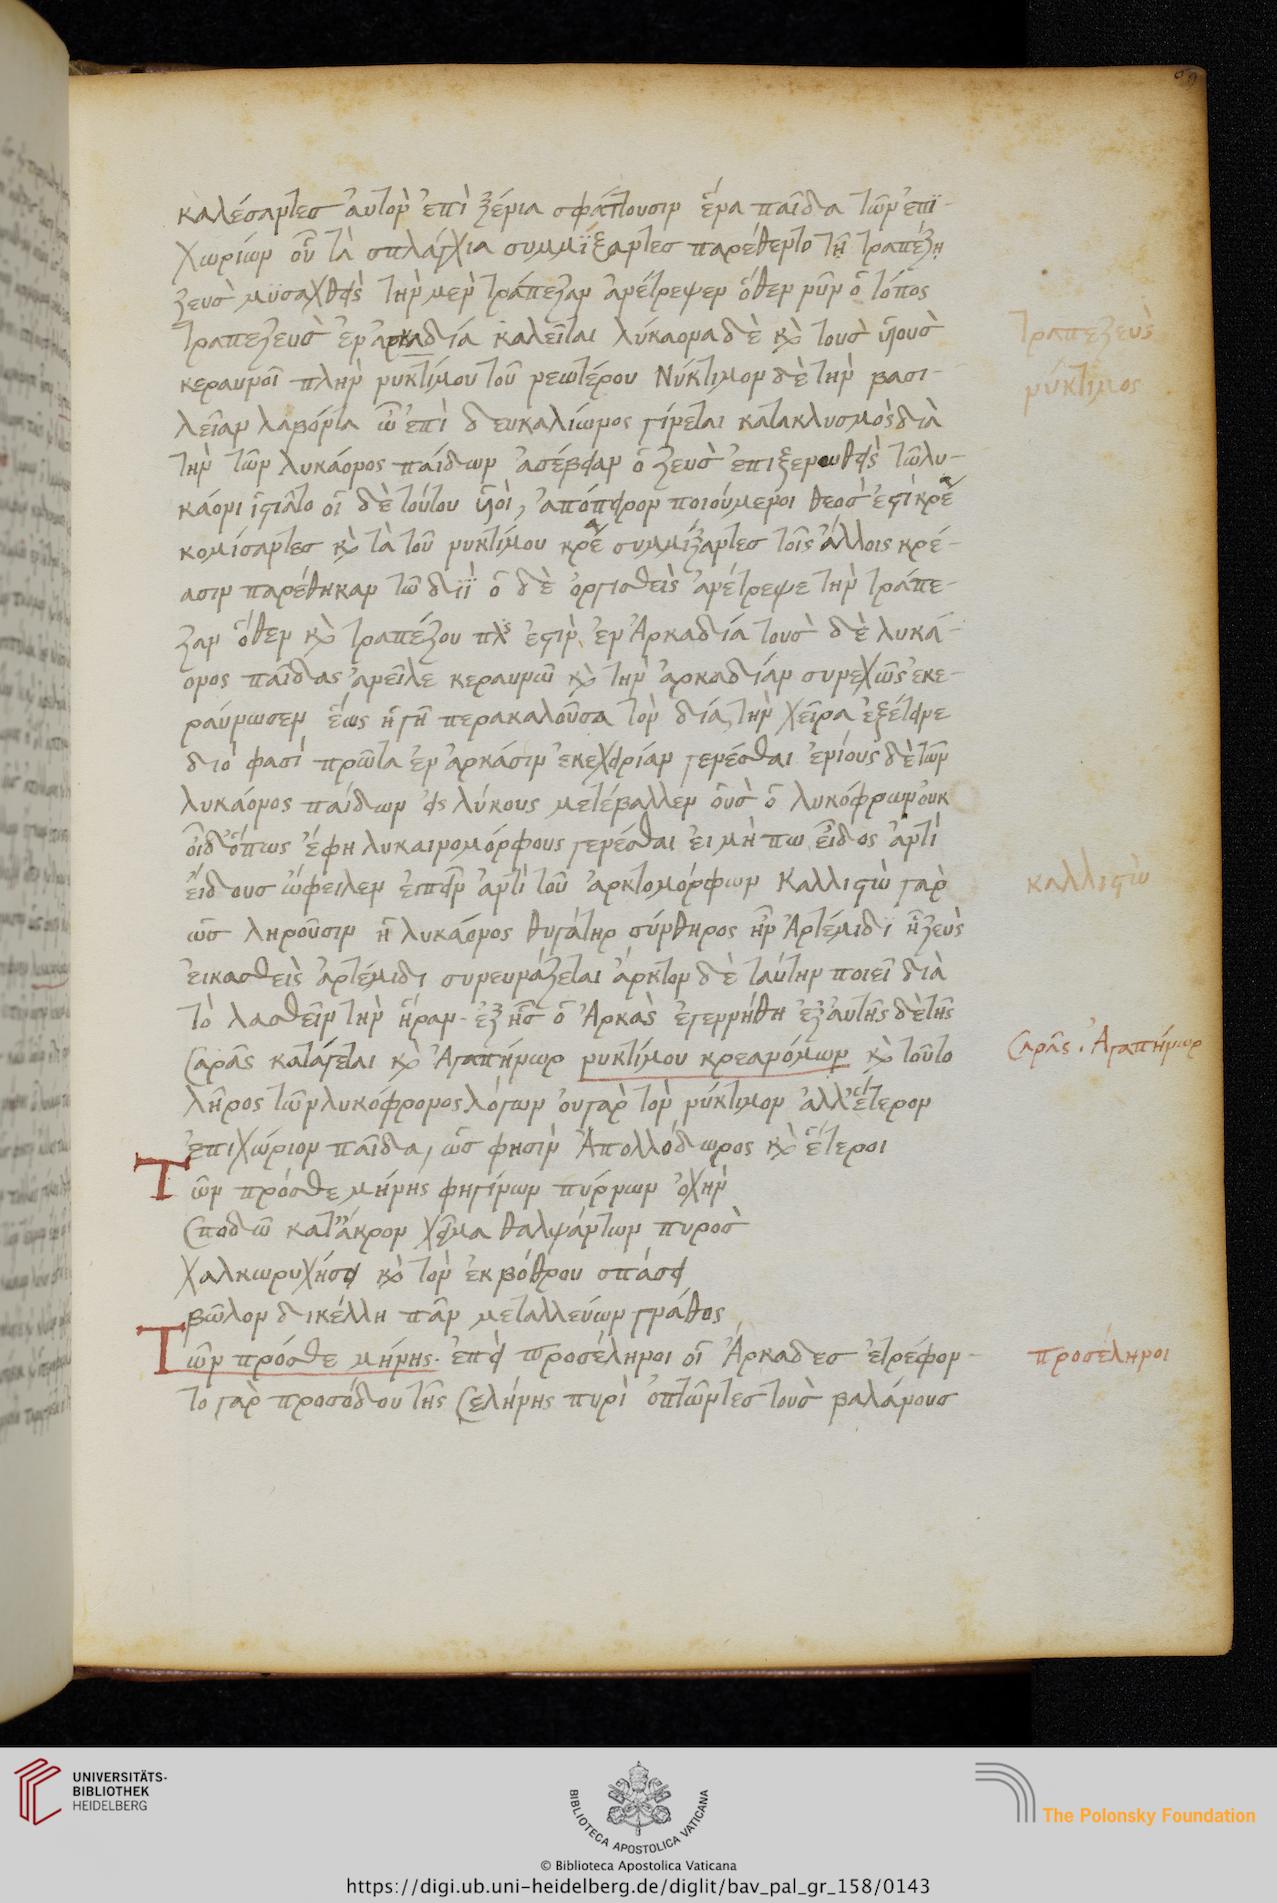 καλέσαντεσ ἀυτὸν ἐπὶ ξένια σφάττουσιν ἕνα παῖδα τῶν ἐπϊ-
χωρίων οὗ τὰ σπλάγχια συμμϊξαντεσ παρέθεντο τῇ τραπέζῃ
ζευσ μϋσαχθεὶς τὴν μὲν τράπεζαν ἀνέτρεψεν ὅθεν νῦν ὁ τόπος
τραπεζευσ ἐν ἀρκαδία καλεῖται λύκαονα δὲ καὶ τουσ ὑϊουσ
κεραυνοῖ πλὴν νυκτίμου τοῦ νεωτέρου Νύκτιμον δὲ τὴν βασι-
λεῖαν λαβόντα ὧ ἐπὶ δευκαλίωνος γίνεται κατακλυσμὸς διὰ
τὴν τῶν λυκάονος παίδων ἀσέβειαν ὁ ζευσ ἐπιξενωθεὶς τῶ λυ-
κάονι ἱστιᾶτο οἱ δὲ τούτου ὑϊοὶ, ἀπόπειρον ποιούμενοι θεοσ ἐστὶ κρέα
κομίσαντεσ καὶ τὰ τοῦ νυκτίμου κρέα συμμίξαντεσ τοῖς ἄλλοις κρέ-
ασιν παρέθηκαν τῶ διῒ ὁ δὲ ὀργισθεὶς ἀνέτρεψε τὴν τράπε-
ζαν ὅθεν καὶ τραπέζου πλς ἐστὶν ἐν Ἀρκαδία τουσ δὲ λυκά-
ονος παῖδας ἀνεῖλε κεραυνῶ καὶ τὴν ἀρκαδίαν συνεχῶς ἐκε-
ραύνωσεν ἕως ἡ γῆ περακαλοῦσα τὸν δία, τὴν χεῖρα ἐξέτεινε
διό φασί πρῶτα ἐν ἀρκάσιν ἐκεχειρίαν γενέσθαι ἐνίους δὲ τῶν
λυκάονος παίδων εἰς λύκους μετέβαλλεν οὓσ ὁ λυκόφρων ὀυκ
οἶδ' ὅπως ἔφη λυκαινομόρφους γενέσθαι ἐι μή πω εἶδος ἀντὶ
ἔιδουσ ὤφειλεν ἐιπεῖν ἀντὶ τοῦ ἀρκτομόρφων Καλλιστὼ γαρ
ὡσ ληροῦσιν ἡ λυκάονος θυγάτηρ σύνθηρος ἦν Ἀρτέμιδϊ ἧ ζεὺς
ἐικασθεὶς ἀρτέμιδι συνευνάζεται ἄρκτον δὲ ταύτην ποιεῖ διὰ
τὸ λασθεῖν τὴν ἥραν. ἐξ ἧσ ὁ Ἀρκὰς ἐγεννήθη ἐξ ἀυτῆς δὲ τῆς
Σαρᾶς κατάγεται καὶ Ἀγαπήνωρ νυκτίμου κρεανόμων καὶ τοῦτο
λῆρος τῶν λυκόφρονος λόγων ου γαρ τὸν νύκτιμον ἀλλ' ἕτερον
ἐπιχώριον παῖδα, ὥσ φησὶν Ἀπολλόδωρος καὶ ἕτεροι
Τῶν πρόσθε μήνης φηγίνων πύρνων ὀχὴν
Σποδῶ κατ' ἄκρον χεῖμα θαλψάντων πυροσ
Χαλκωρυχήσει καὶ τὸν ἐκ βόθρου σπάσει
βῶλον δικέλλη πᾶν μεταλλεύων γνάθος
Τῶν πρόσθε μήνης. ἐπεὶ προσέληνοι οἱ Ἀρκαδεσ ἐτρέφον-
το γαρ προσόδου τῆς Σελήνης πυρὶ ὀπτῶντες τουσ βαλάνουσ
τραπεζευς
νύκτιμος
καλλιστὼ
Σαρᾶς. Ἀγαπήνωρ
προσέληνοι
UNIVERSITÄTS-
BIBLIOTHEK
HEIDELBERG
BIBLIOTECA APOSTOLICA VATICANA
The Polonsky Foundation
© Biblioteca Apostolica Vaticana
https://digi.ub.uni-heidelberg.de/diglit/bav_pal_gr_158/0143